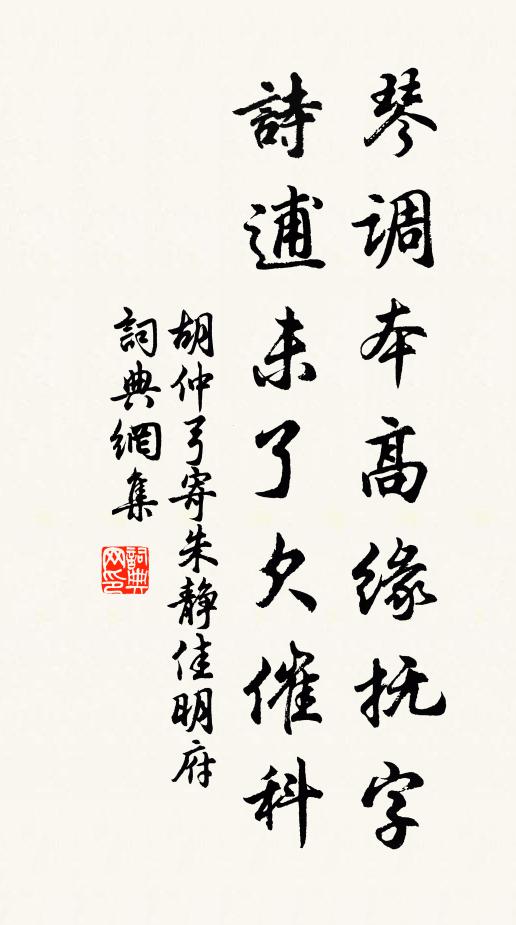 琴调本高缘抚字
詩逋未了欠催科
胡仲弓寄朱静佳明府
詞典網集
詞典网印